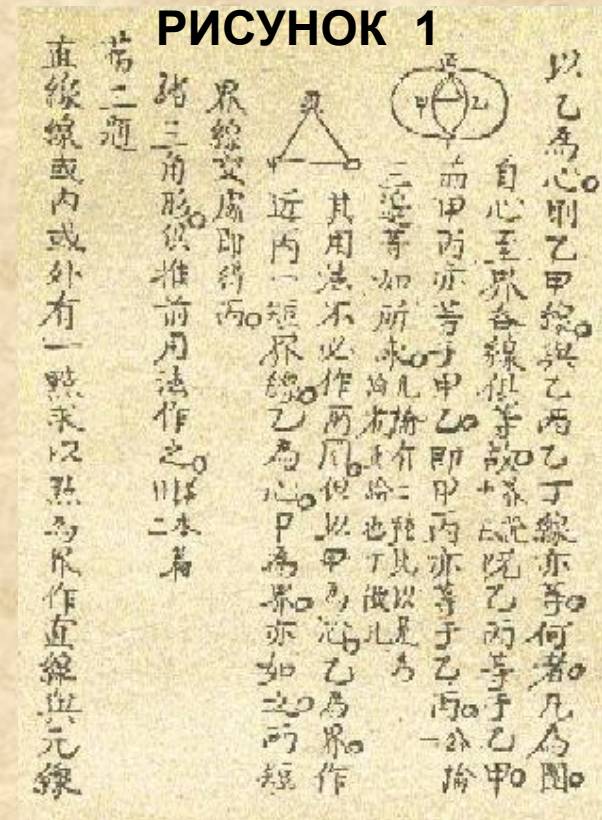 РИСУНОК 1
以乙為心。則乙甲線。與乙丙乙丁線亦等。何者。凡為圜。
自心至界各線俱等故。界說十五既乙丙等于乙甲。
丙
甲 乙
丁
而甲丙亦等于甲乙。即甲丙亦等于乙丙。公論一
三邊等如所求。凡論有二種此以是為論者正論也下倣此
丙
其用法不必作兩圜。但以甲為心。乙為界。作
近丙一短界線。乙為心。甲為界。亦如之。兩短
界線交處即得丙。
諸三角形。俱推前用法作之。詳本篇廿二
第二題
直線線或內或外有一點求以點為界作直線與元線